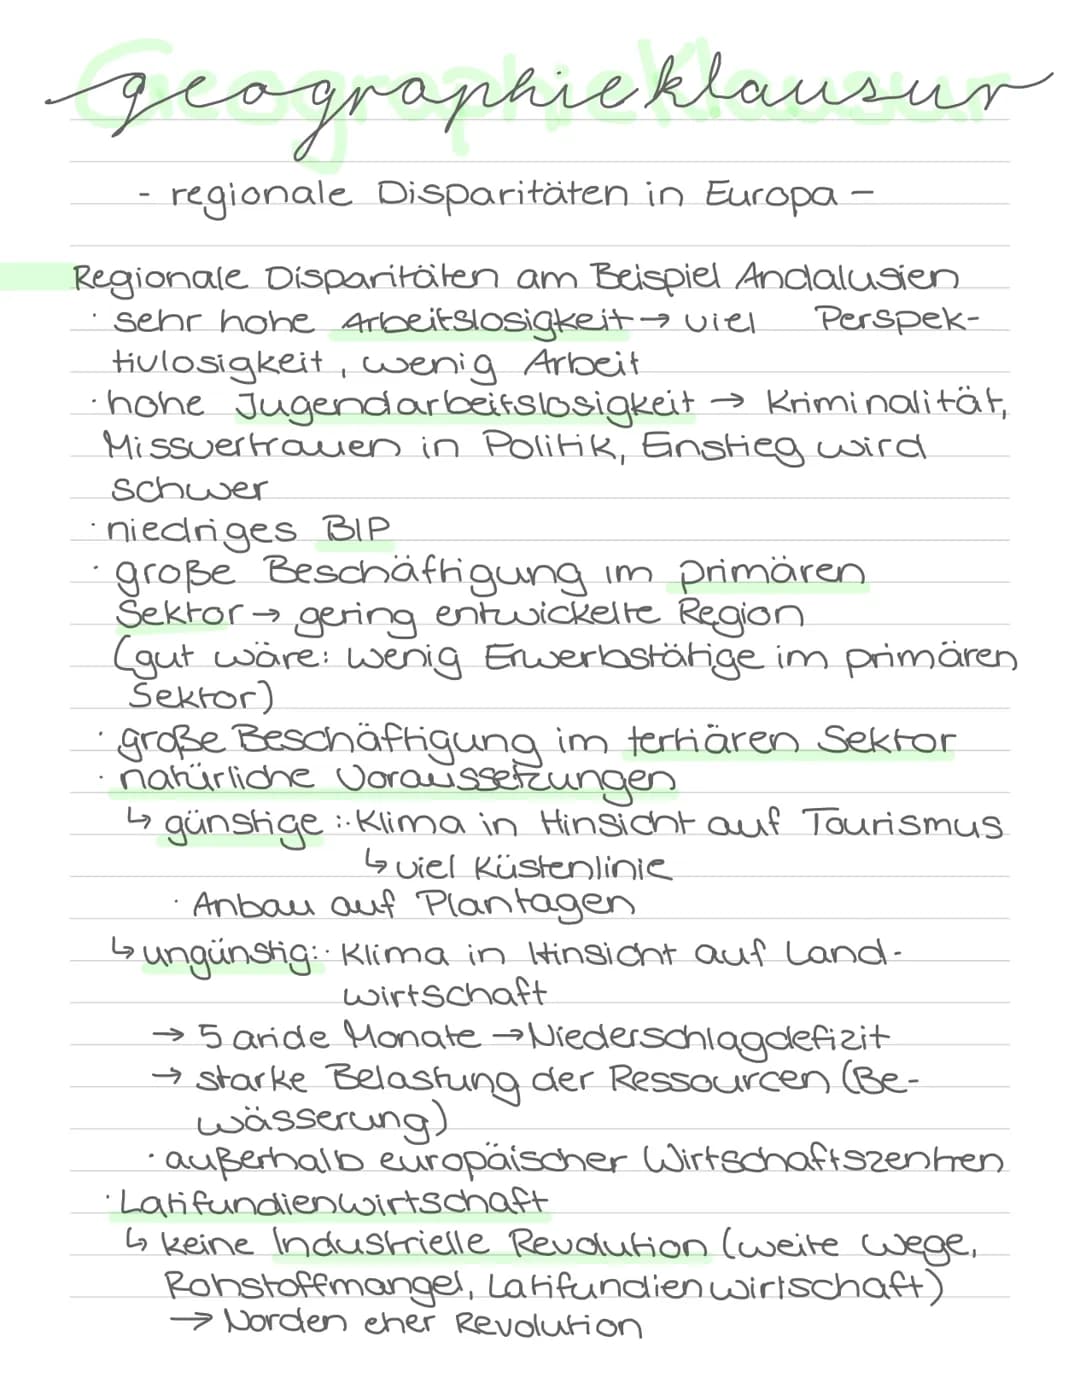 Geographieklausur
geographieklausur
- regionale Disparitäten in Europa -
Regionale Disparitäten am Beispiel Andalusien
· sehr hohe Arbeitslosigkeit → viel Perspek-
tivlosigkeit, wenig Arbeit
· hohe Jugendarbeitslosigkeit → Kriminalität,
Missvertrauen in Politik, Einstieg wird
schwer
· niedriges BIP
· große Beschäftigung im primären
Sektor → gering entwickelte Region
(gut wäre: wenig Erwerbstätige im primären
Sektor)
· große Beschäftigung im tertiären Sektor
· natürliche Voraussetzungen
↳ günstige :· Klima in Hinsicht auf Tourismus
↳ viel Küstenlinie
· Anbau auf Plantagen
↳ ungünstig: · Klima in Hinsicht auf Land-
wirtschaft
→ 5 aride Monate → Niederschlagdefizit
→ starke Belastung der Ressourcen (Be-
wässerung)
· außerhalb europäischer Wirtschaftszentren
· Latifundienwirtschaft
↳ keine Industrielle Revolution (weite Wege,
Rohstoffmangel, Latifundienwirtschaft)
→ Norden eher Revolution